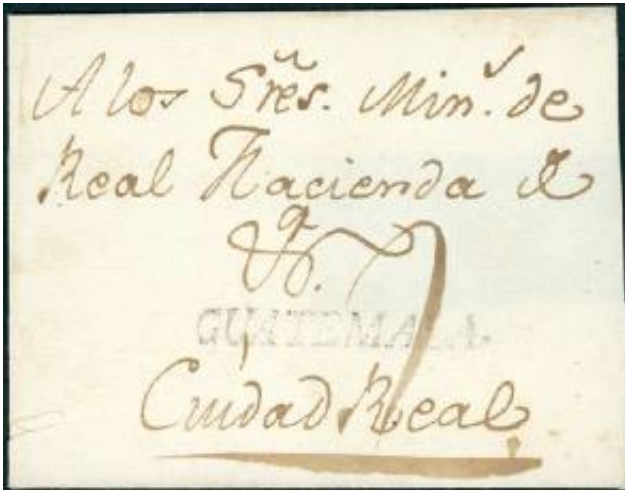 A los S.res. Min.s de
Real Hacienda &
GUATEMALA.
Ciudad Real